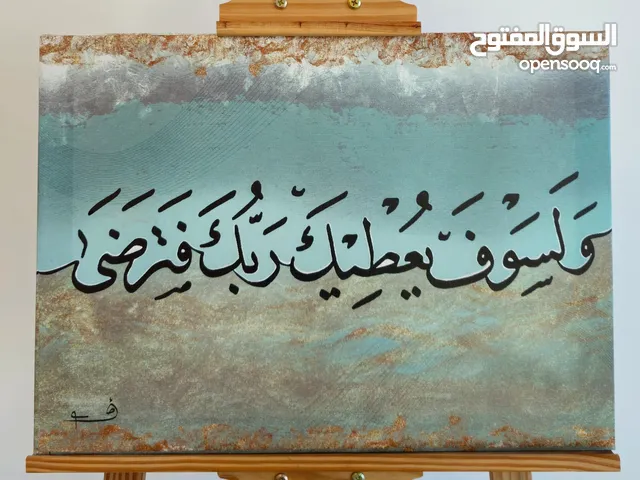 السوق المفتوح
opensooq.com
وَلَسَوْفَ يُعْطِيْكَ رَبُّكَ فَتَرْضَىَ